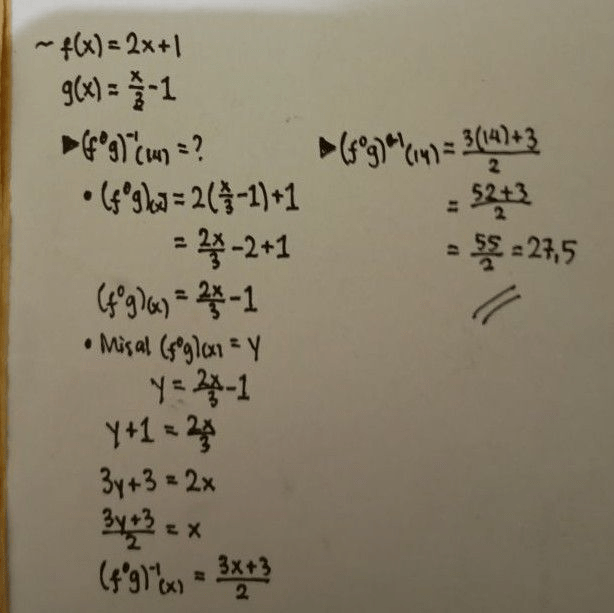 ~ f(x) = 2x+1
g(x) = x/3 - 1
▶(f°g)⁻¹(14) = ?
• (f°g)(x) = 2(x/3 - 1) + 1
= 2x/3 - 2 + 1
(f°g)(x) = 2x/3 - 1
• Misal (f°g)(x) = y
y = 2x/3 - 1
y + 1 = 2x/3
3y + 3 = 2x
3y+3/2 = x
(f°g)⁻¹(x) = 3x+3/2
▶(f°g)⁻¹(14) = 3(14)+3/2
= 52+3/2
= 55/2 = 27,5